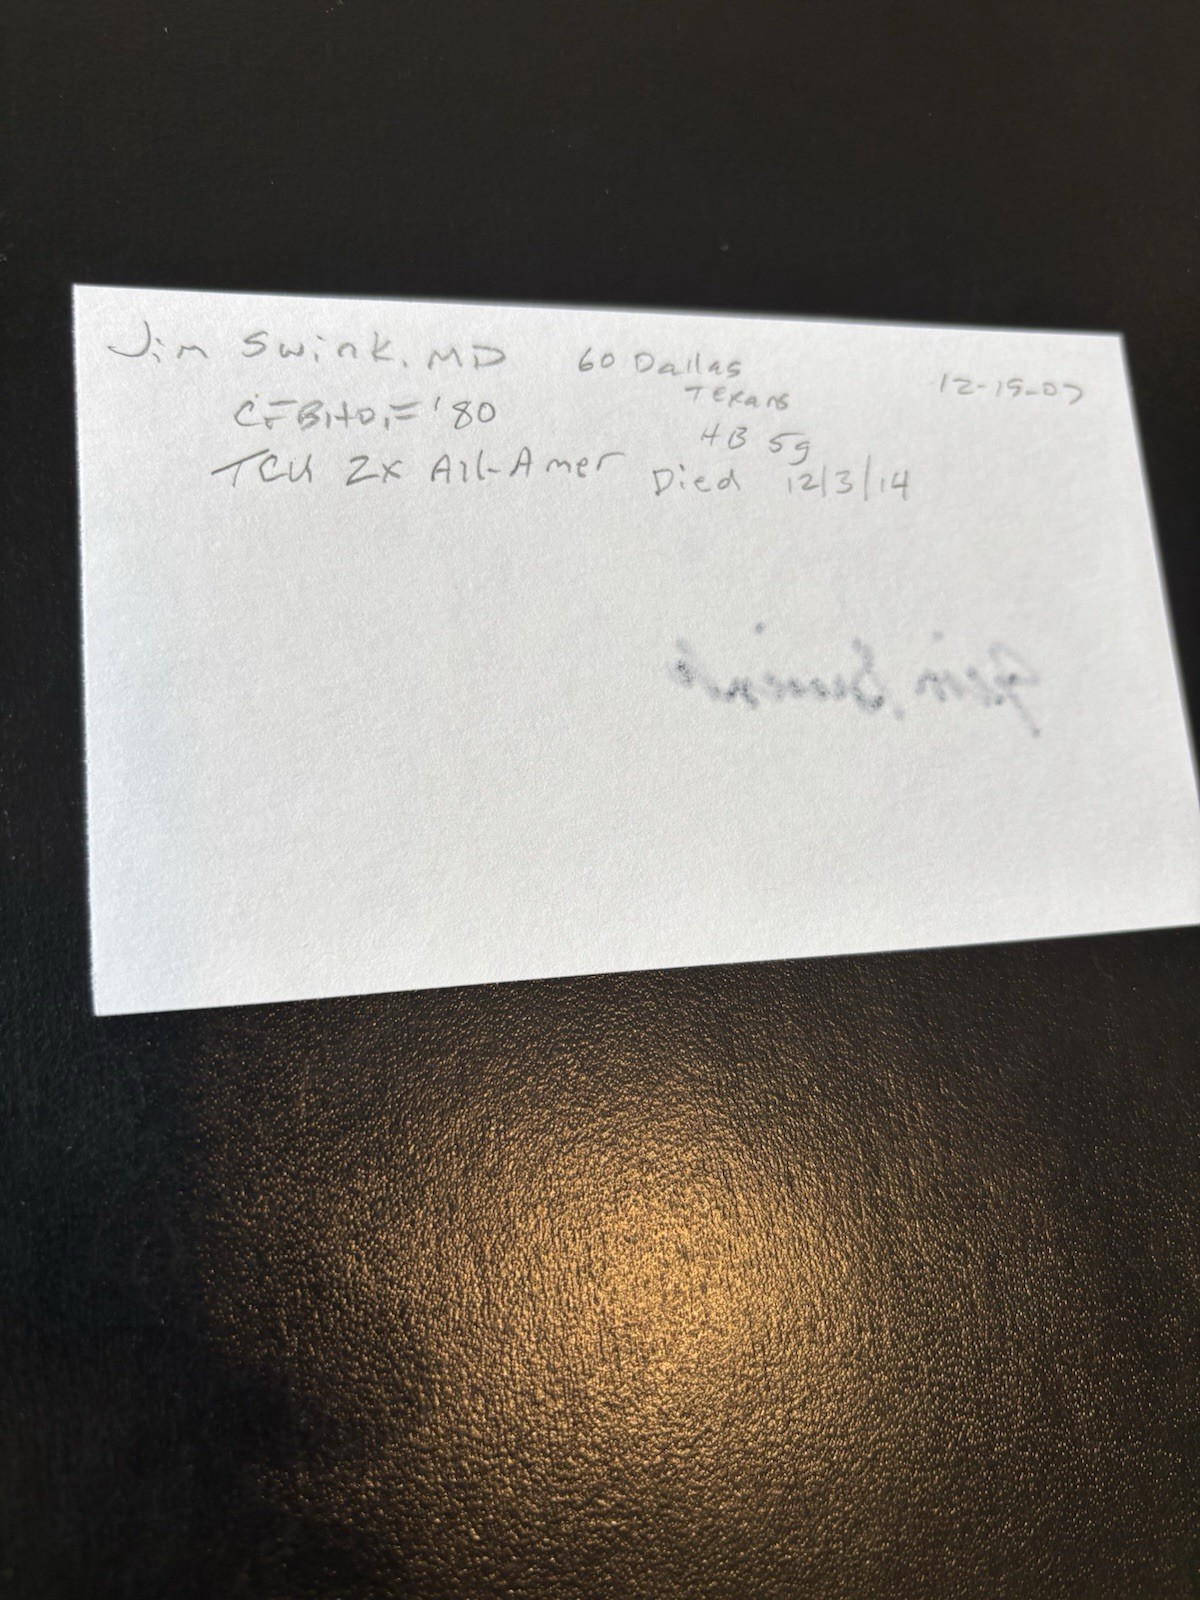 Jim Swink, MD
CFBHOF '80
TCU 2x All-Amer
60 Dallas
Texans
HB 5g
Died 12/3/14
12-19-07
Jim Swink